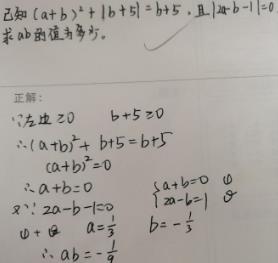 已知 (a+b)²+|b+5|=b+5，且|2a-b-1|=0
求ab的值为多少。
正解：
∵左边≥0 b+5≥0
∴(a+b)²+b+5=b+5
(a+b)²=0
∴a+b=0 {a+b=0 ①
又∵ 2a-b-1=0 2a-b=1 ②
①+② a=1/3 b=-1/3
∴ab=-1/9